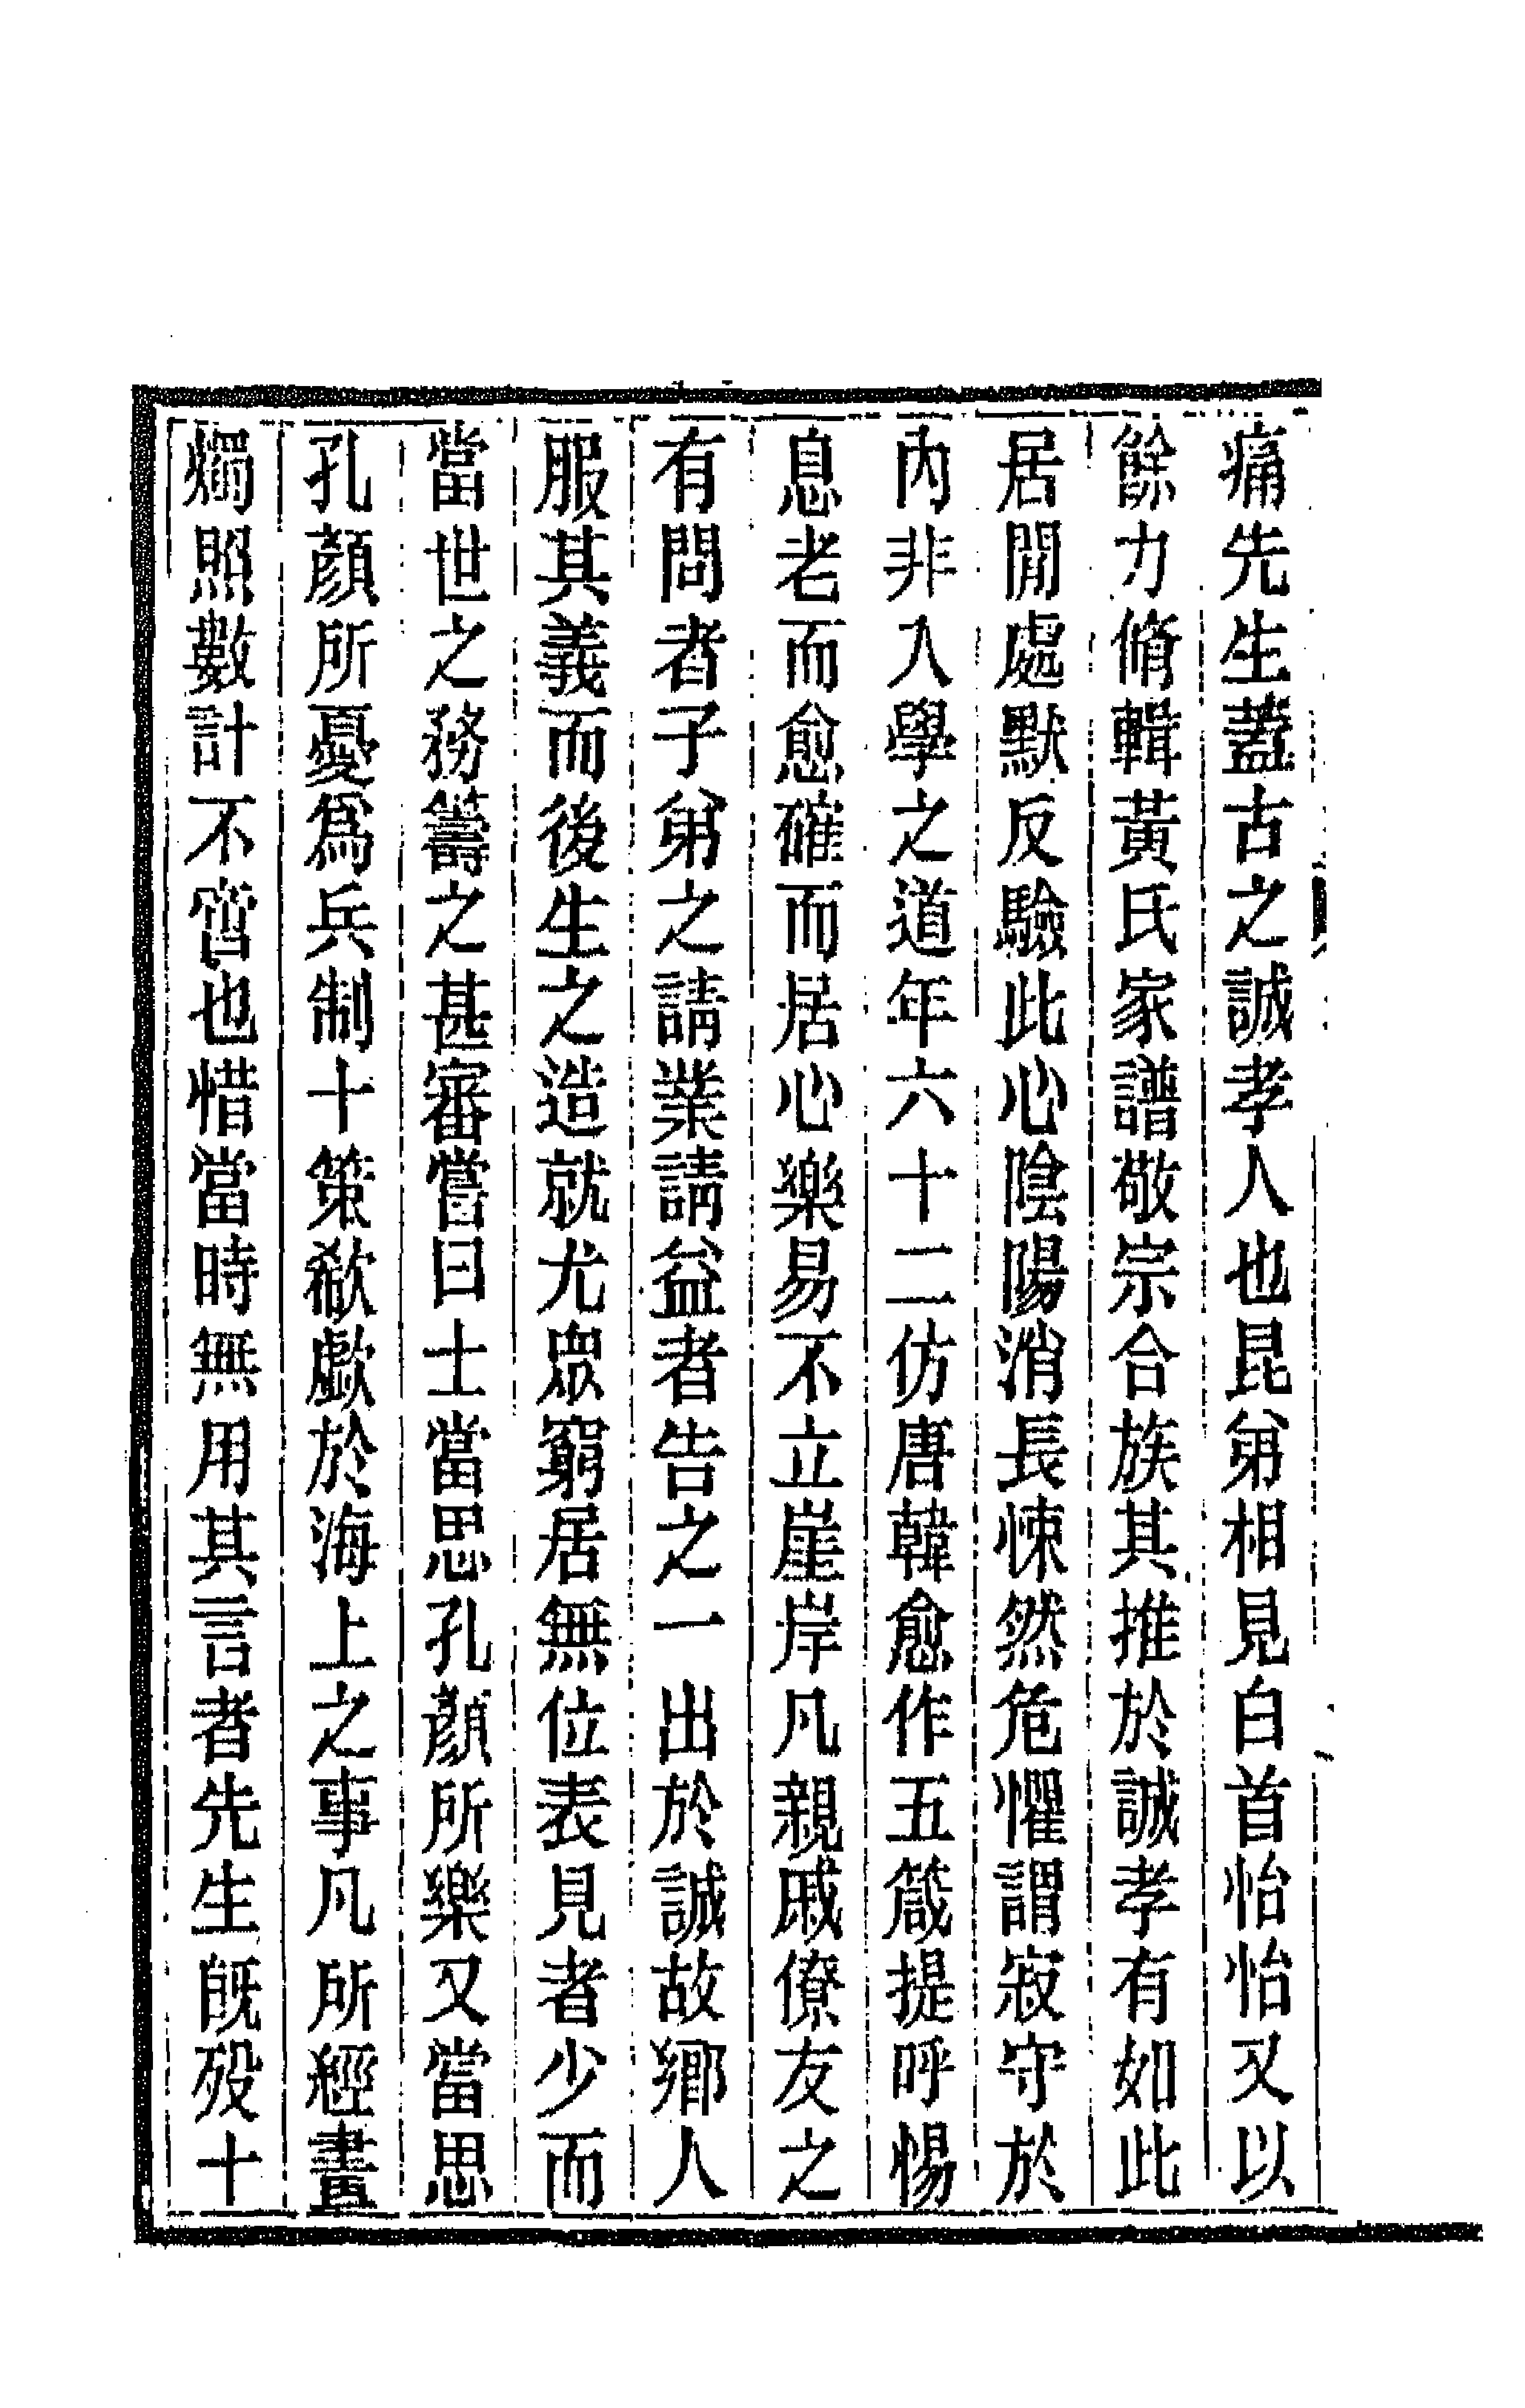 痛先生蓋古之誠孝人也昆弟相見白首怡怡又以
餘力脩輯黃氏家譜敬宗合族其推於誠孝有如此
居閒處默反驗此心陰陽消長悚然危懼謂寂守於
內非入學之道年六十二仿唐韓愈作五箴提呼惕
息老而愈確而居心樂易不立崖岸凡親戚僚友之
有問者子弟之請業請益者告之一出於誠故鄉人
服其義而後生之造就尤眾窮居無位表見者少而
當世之務籌之甚審嘗曰士當思孔顏所樂又當思
孔顏所憂爲兵制十策欷歔於海上之事凡所經畫
燭照數計不啻也惜當時無用其言者先生既歿十